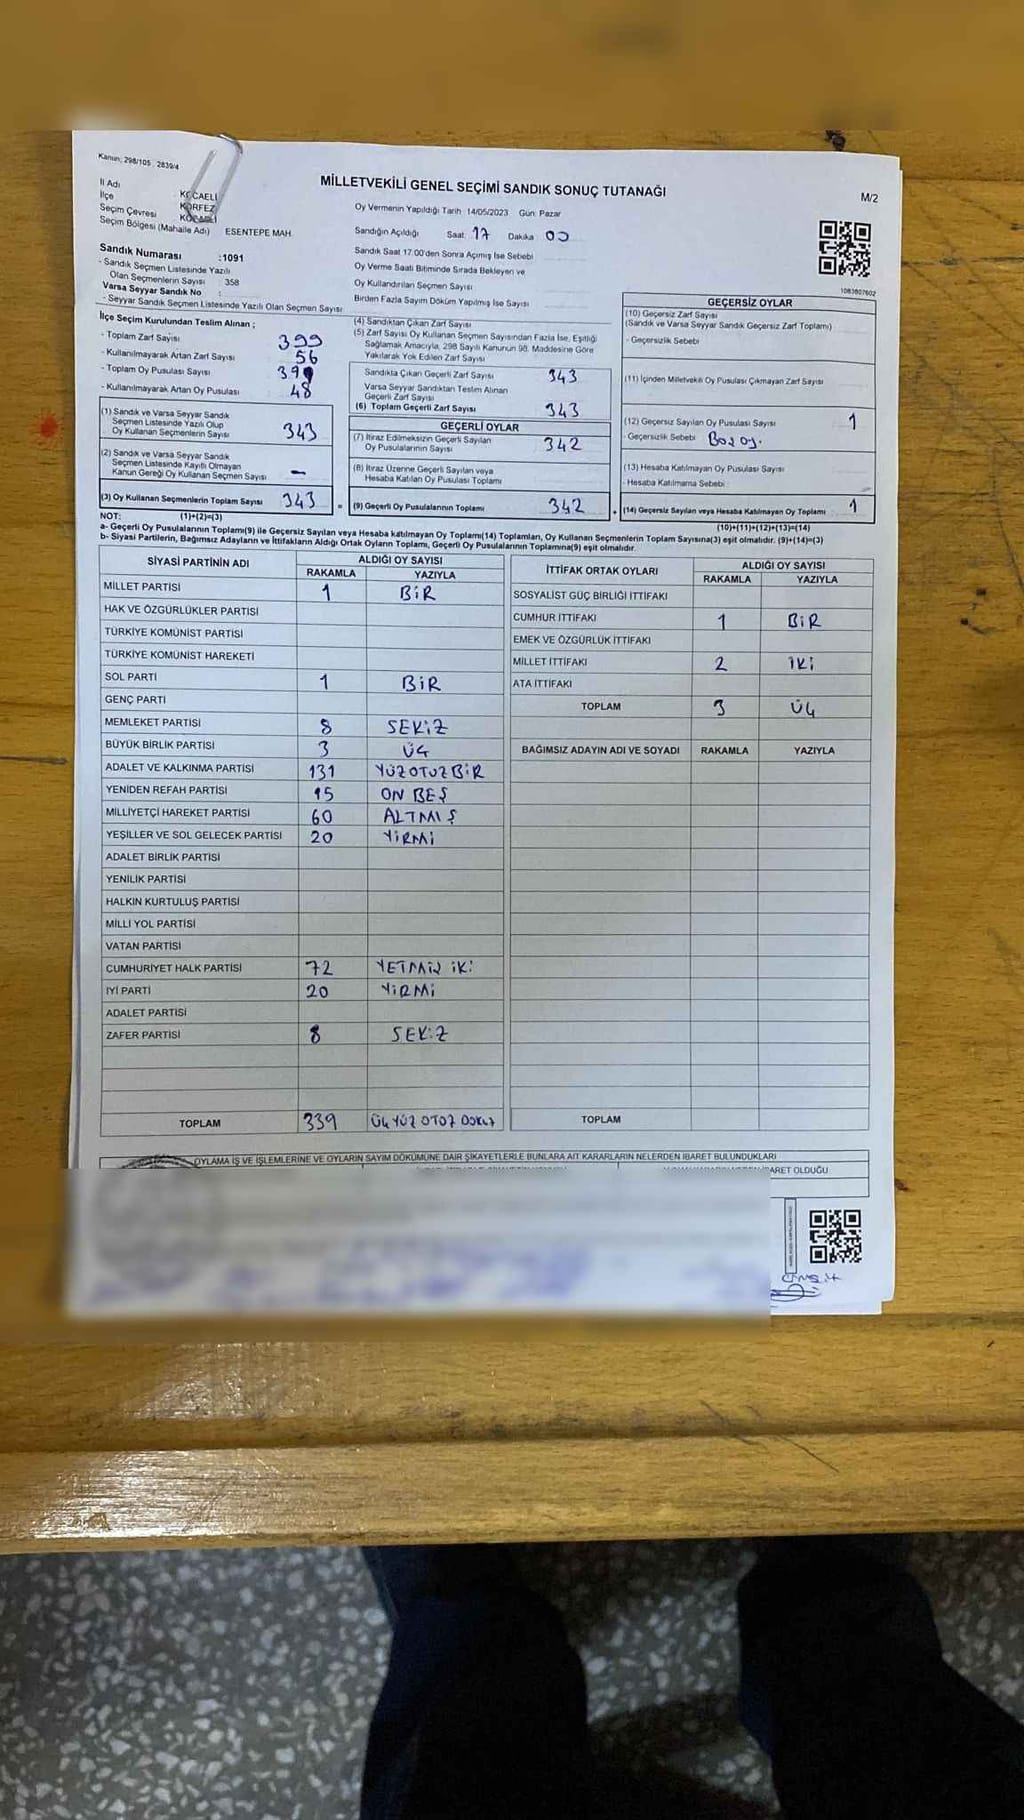 Kanun; 298/105 2839/4
MİLLETVEKİLİ GENEL SEÇİMİ SANDIK SONUÇ TUTANAĞI
M/2
İl Adı KOCAELİ
İlçe KÖRFEZ
Seçim Çevresi KOCAELİ
Seçim Bölgesi (Mahalle Adı) ESENTEPE MAH.
Oy Vermenin Yapıldığı Tarih 14/05/2023 Gün: Pazar
Sandığın Açıldığı Saat: 17 Dakika 00
Sandık Saat 17.00'den Sonra Açımış İse Sebebi
Oy Verme Saati Bitiminde Sırada Bekleyen ve
Oy Kullandırılan Seçmen Sayısı
Birden Fazla Sayım Döküm Yapılmış İse Sayısı
Sandık Numarası :1091
- Sandık Seçmen Listesinde Yazılı
Olan Seçmenlerin Sayısı : 358
Varsa Seyyar Sandık No
- Seyyar Sandık Seçmen Listesinde Yazılı Olan Seçmen Sayısı
İlçe Seçim Kurulundan Teslim Alınan ;
- Toplam Zarf Sayısı 399
- Kullanılmayarak Artan Zarf Sayısı 56
- Toplam Oy Pusulası Sayısı
- Kullanılmayarak Artan Oy Pusulası 48
(1) Sandık ve Varsa Seyyar Sandık
Seçmen Listesinde Yazılı Olup
Oy Kullanan Seçmenlerin Sayısı 343
(2) Sandık ve Varsa Seyyar Sandık
Seçmen Listesinde Kayıtlı Olmayan
Kanun Gereği Oy Kullanan Seçmen Sayısı -
(3) Oy Kullanan Seçmenlerin Toplam Sayısı 343
(4) Sandıktan Çıkan Zarf Sayısı
(5) Zarf Sayısı Oy Kullanan Seçmen Sayısından Fazla İse, Eşitliği
Sağlamak Amacıyla, 298 Sayılı Kanunun 98. Maddesine Göre
Yakılarak Yok Edilen Zarf Sayısı
Sandıkta Çıkan Geçerli Zarf Sayısı 343
Varsa Seyyar Sandıktan Teslim Alınan
Geçerli Zarf Sayısı
(6) Toplam Geçerli Zarf Sayısı 343
GEÇERLİ OYLAR
(7) İtiraz Edilmeksizin Geçerli Sayılan
Oy Pusulalarının Sayısı 342
(8) İtiraz Üzerine Geçerli Sayılan veya
Hesaba Katılan Oy Pusulası Toplamı
(9) Geçerli Oy Pusulalarının Toplamı 342
1083807602
GEÇERSİZ OYLAR
(10) Geçersiz Zarf Sayısı
(Sandık ve Varsa Seyyar Sandık Geçersiz Zarf Toplamı)
- Geçersizlik Sebebi
(11) İçinden Milletvekili Oy Pusulası Çıkmayan Zarf Sayısı
(12) Geçersiz Sayılan Oy Pusulası Sayısı 1
- Geçersizlik Sebebi Boş oy.
(13) Hesaba Katılmayan Oy Pusulası Sayısı
- Hesaba Katılmama Sebebi
(14) Geçersiz Sayılan veya Hesaba Katılmayan Oy Toplamı 1
NOT: (1)+(2)=(3)
(10)+(11)+(12)+(13)=(14)
a- Geçerli Oy Pusulalarının Toplamı(9) ile Geçersiz Sayılan veya Hesaba katılmayan Oy Toplamı(14) Toplamları, Oy Kullanan Seçmenlerin Toplam Sayısına(3) eşit olmalıdır. (9)+(14)=(3)
b- Siyasi Partilerin, Bağımsız Adayların ve İttifakların Aldığı Ortak Oyların Toplamı, Geçerli Oy Pusulalarının Toplamına(9) eşit olmalıdır
SİYASİ PARTİNİN ADI ALDIĞI OY SAYISI
RAKAMLA YAZIYLA
MİLLET PARTİSİ 1 BİR
HAK VE ÖZGÜRLÜKLER PARTİSİ
TÜRKİYE KOMÜNİST PARTİSİ
TÜRKİYE KOMÜNİST HAREKETİ
SOL PARTİ 1 BİR
GENÇ PARTİ
MEMLEKET PARTİSİ 8 SEKİZ
BÜYÜK BİRLİK PARTİSİ 3 ÜÇ
ADALET VE KALKINMA PARTİSİ 131 YÜZOTUZBİR
YENİDEN REFAH PARTİSİ 15 ON BEŞ
MİLLİYETÇİ HAREKET PARTİSİ 60 ALTMIŞ
YEŞİLLER VE SOL GELECEK PARTİSİ 20 YİRMİ
ADALET BİRLİK PARTİSİ
YENİLİK PARTİSİ
HALKIN KURTULUŞ PARTİSİ
MİLLİ YOL PARTİSİ
VATAN PARTİSİ
CUMHURİYET HALK PARTİSİ 72 YETMİŞ İKİ
İYİ PARTİ 20 YİRMİ
ADALET PARTİSİ
ZAFER PARTİSİ 8 SEKİZ
TOPLAM 339 ÜÇ YÜZ OTUZ DOKUZ
İTTİFAK ORTAK OYLARI ALDIĞI OY SAYISI
RAKAMLA YAZIYLA
SOSYALİST GÜÇ BİRLİĞİ İTTİFAKI
CUMHUR İTTİFAKI 1 BİR
EMEK VE ÖZGÜRLÜK İTTİFAKI
MİLLET İTTİFAKI 2 İKİ
ATA İTTİFAKI
TOPLAM 3 ÜÇ
BAĞIMSIZ ADAYIN ADI VE SOYADI RAKAMLA YAZIYLA
TOPLAM
OYLAMA İŞ VE İŞLEMLERİNE VE OYLARIN SAYIM DÖKÜMÜNE DAİR ŞİKAYETLERLE BUNLARA AİT KARARLARIN NELERDEN İBARET BULUNDUKLARI
İBARET OLDUĞU